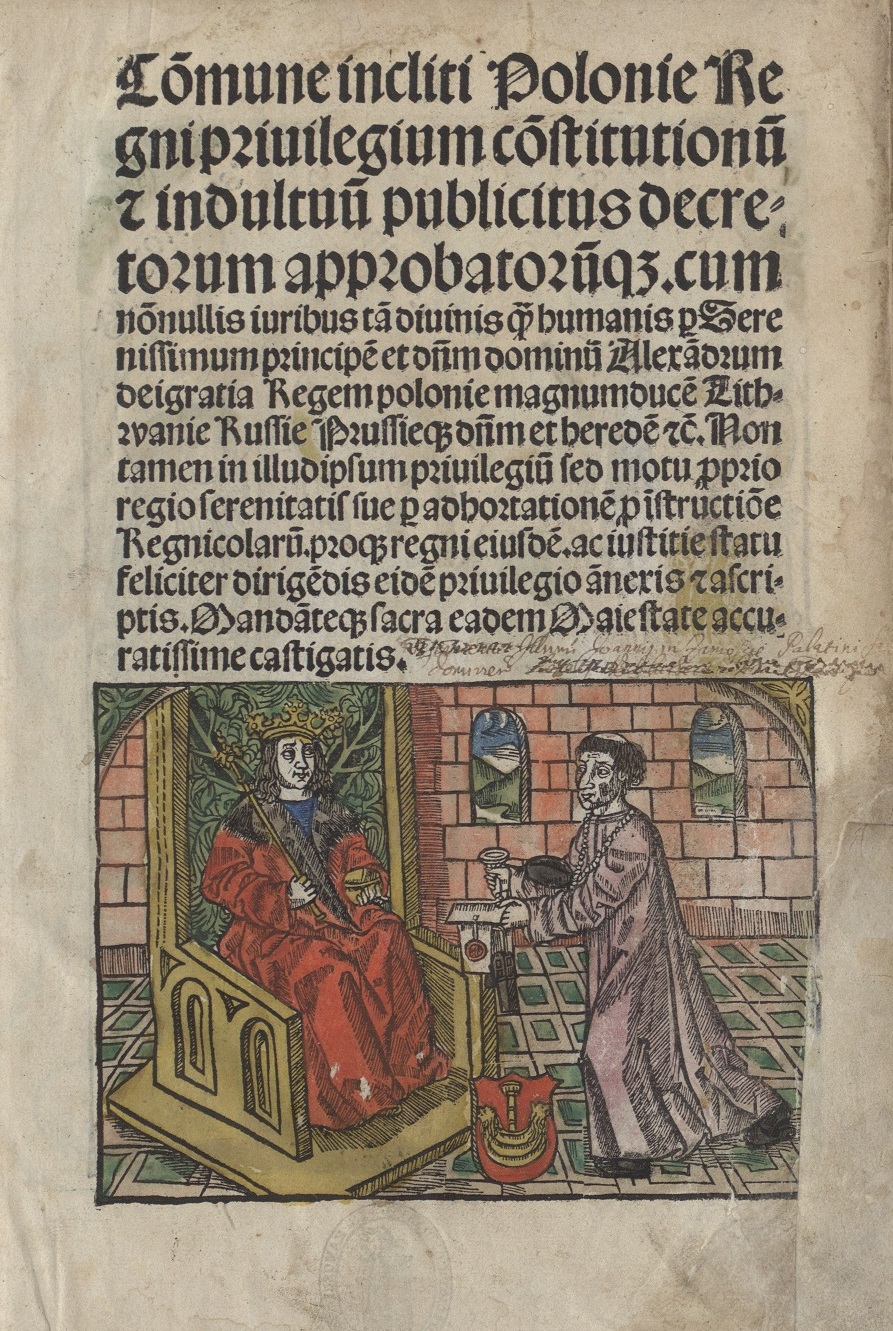 Cōmune incliti Polonie Re
gni priuilegium cōstitutionū
⁊ indultuū publicitus decre⸗
torum approbatorūqꝫ. cum
nōnullis iuribus tā diuinis qͫ̄ humanis ꝑ Sere
nissimum principē et dn̄m dominū Alexādrum
dei gratia Regem polonie magnum ducē Lith⸗
vanie Russie Prussieqꝫ dn̄m et heredē ⁊c̄. Non
tamen in illud ipsum priuilegiū sed motu ꝓprio
regio serenitatis sue ꝑ adhortationē, ꝓ īstructiōe
Regnicolarū. proqꝫ regni eiusdē. ac iustitie statu
feliciter dirigēdis eidē priuilegio ānexis ⁊ ascri⸗
ptis. Mandāteqꝫ sacra eadem Maiestate accu⸗
ratissime castigatis.
Joannis in Palatino